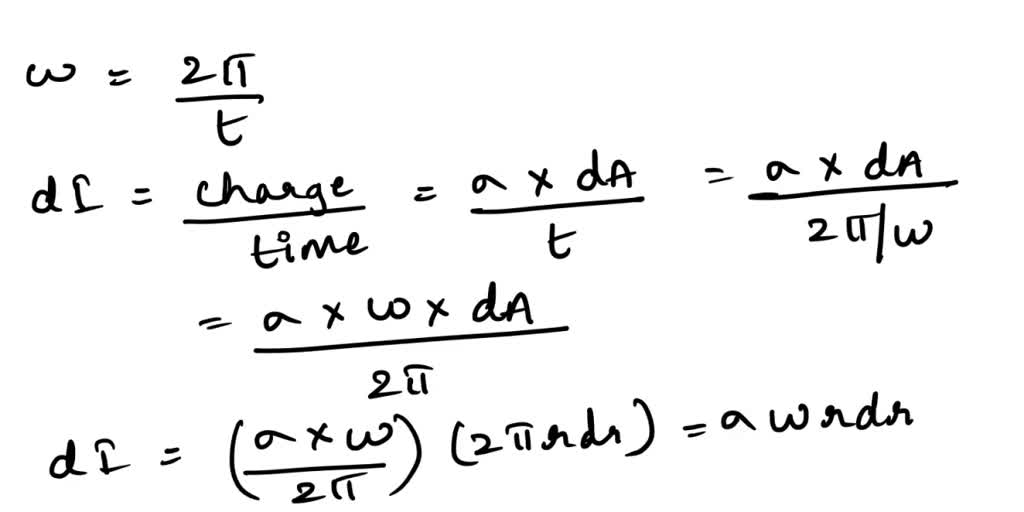 ω = 2π/t
dI = charge/time = a × dA/t = a × dA/2π/ω
= a × ω × dA/2π
dI = (a × ω/2π) (2πrdr) = a ω rdr